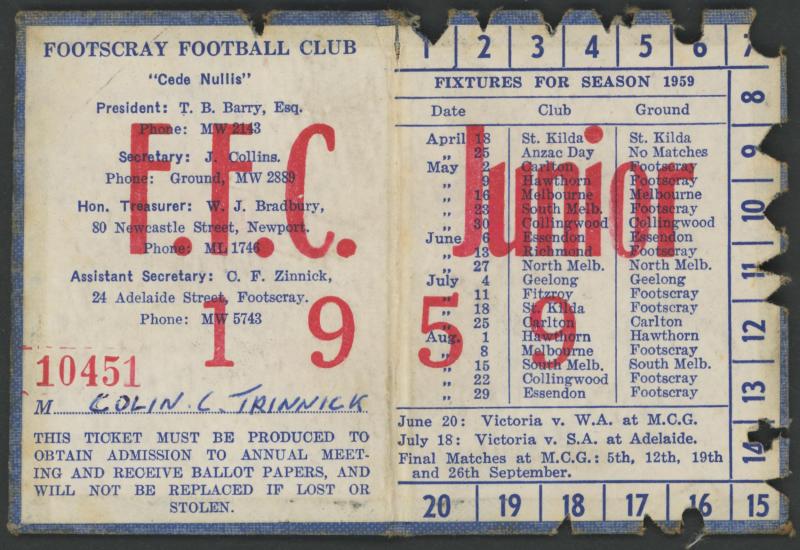 FOOTSCRAY FOOTBALL CLUB
"Cede Nullis"
President: T. B. Barry, Esq.
Phone: MW 2143
Secretary: J. Collins.
Phone: Ground, MW 2889
Hon. Treasurer: W. J. Bradbury,
80 Newcastle Street, Newport.
Phone: ML 1746
Assistant Secretary: C. F. Zinnick,
24 Adelaide Street, Footscray.
Phone: MW 5743
F.F.C.
19
10451
M COLIN. C. TRINNICK
THIS TICKET MUST BE PRODUCED TO
OBTAIN ADMISSION TO ANNUAL MEET-
ING AND RECEIVE BALLOT PAPERS, AND
WILL NOT BE REPLACED IF LOST OR
STOLEN.
1 2 3 4 5 6 7
FIXTURES FOR SEASON 1959
Date Club Ground
April 18 St. Kilda St. Kilda
„ 25 Anzac Day No Matches
May 2 Carlton Footscray
„ 9 Hawthorn Footscray
„ 16 Melbourne Melbourne
„ 23 South Melb. Footscray
„ 30 Collingwood Collingwood
June 6 Essendon Essendon
„ 13 Richmond Footscray
„ 27 North Melb. North Melb.
July 4 Geelong Geelong
„ 11 Fitzroy Footscray
„ 18 St. Kilda Footscray
„ 25 Carlton Carlton
Aug. 1 Hawthorn Hawthorn
„ 8 Melbourne Footscray
„ 15 South Melb. South Melb.
„ 22 Collingwood Footscray
„ 29 Essendon Footscray
Junior
59
June 20: Victoria v. W.A. at M.C.G.
July 18: Victoria v. S.A. at Adelaide.
Final Matches at M.C.G.: 5th, 12th, 19th
and 26th September.
8
9
10
11
12
13
14
20 19 18 17 16 15